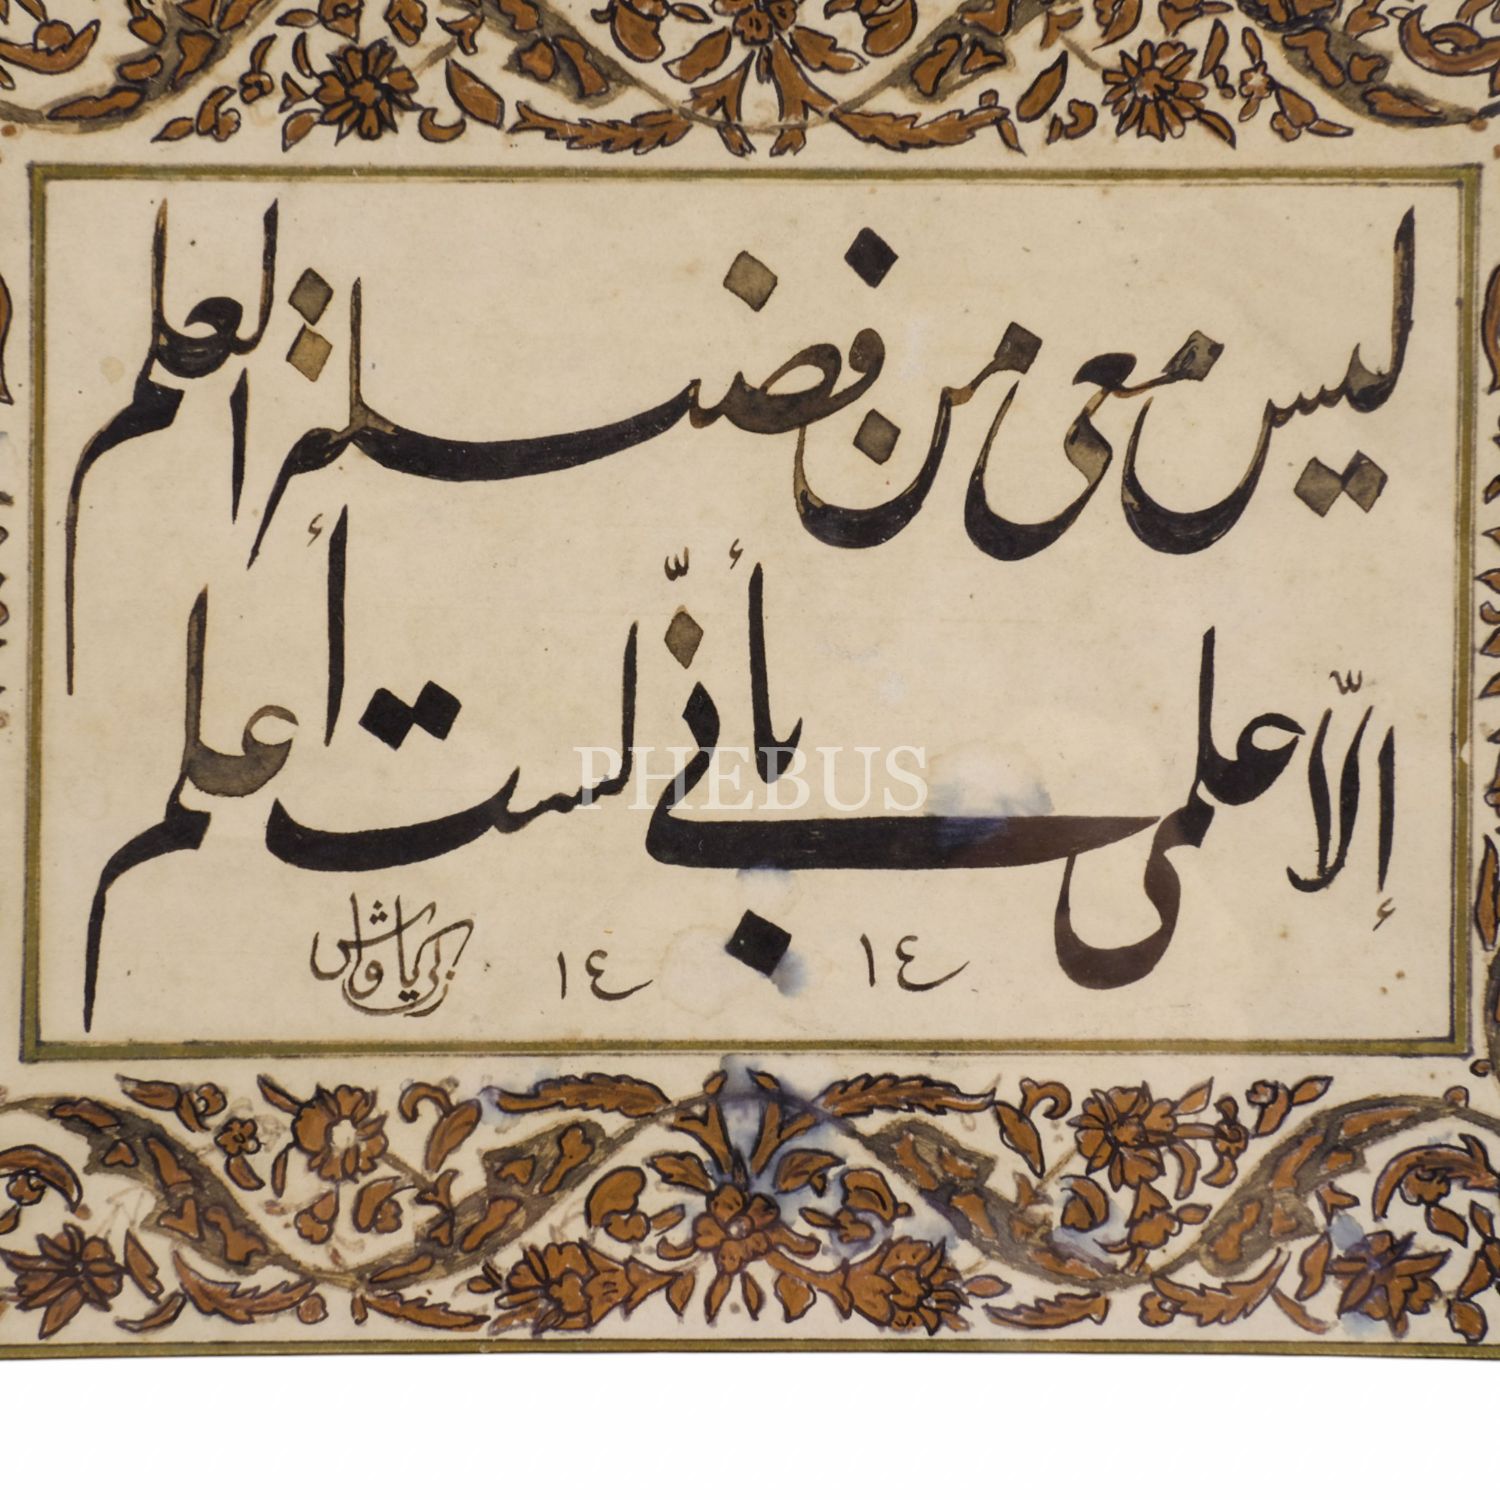 ليس معى من فضيلة العلم
إلاّ علمى بأنّي لست أعلم
١٤ ١٤ زكريا وش
PHEBUS